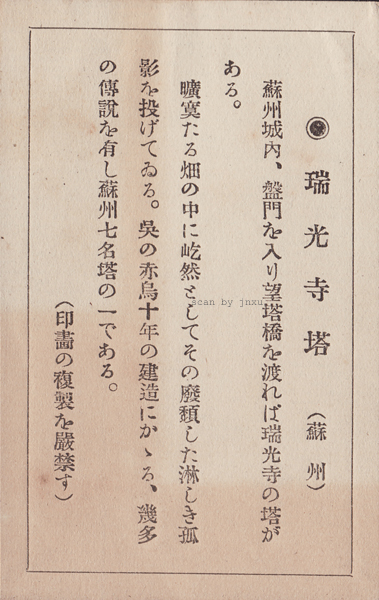 ◉ 瑞光寺塔 （蘇州）
蘇州城内、盤門を入り望塔橋を渡れば瑞光寺の塔が
ある。
曠寞たる畑の中に屹然としてその廢頽した淋しき孤
影を投げてゐる。吳の赤烏十年の建造にかゝる、幾多
の傳說を有し蘇州七名塔の一である。
（印畵の複製を嚴禁す）
scan by jnxu